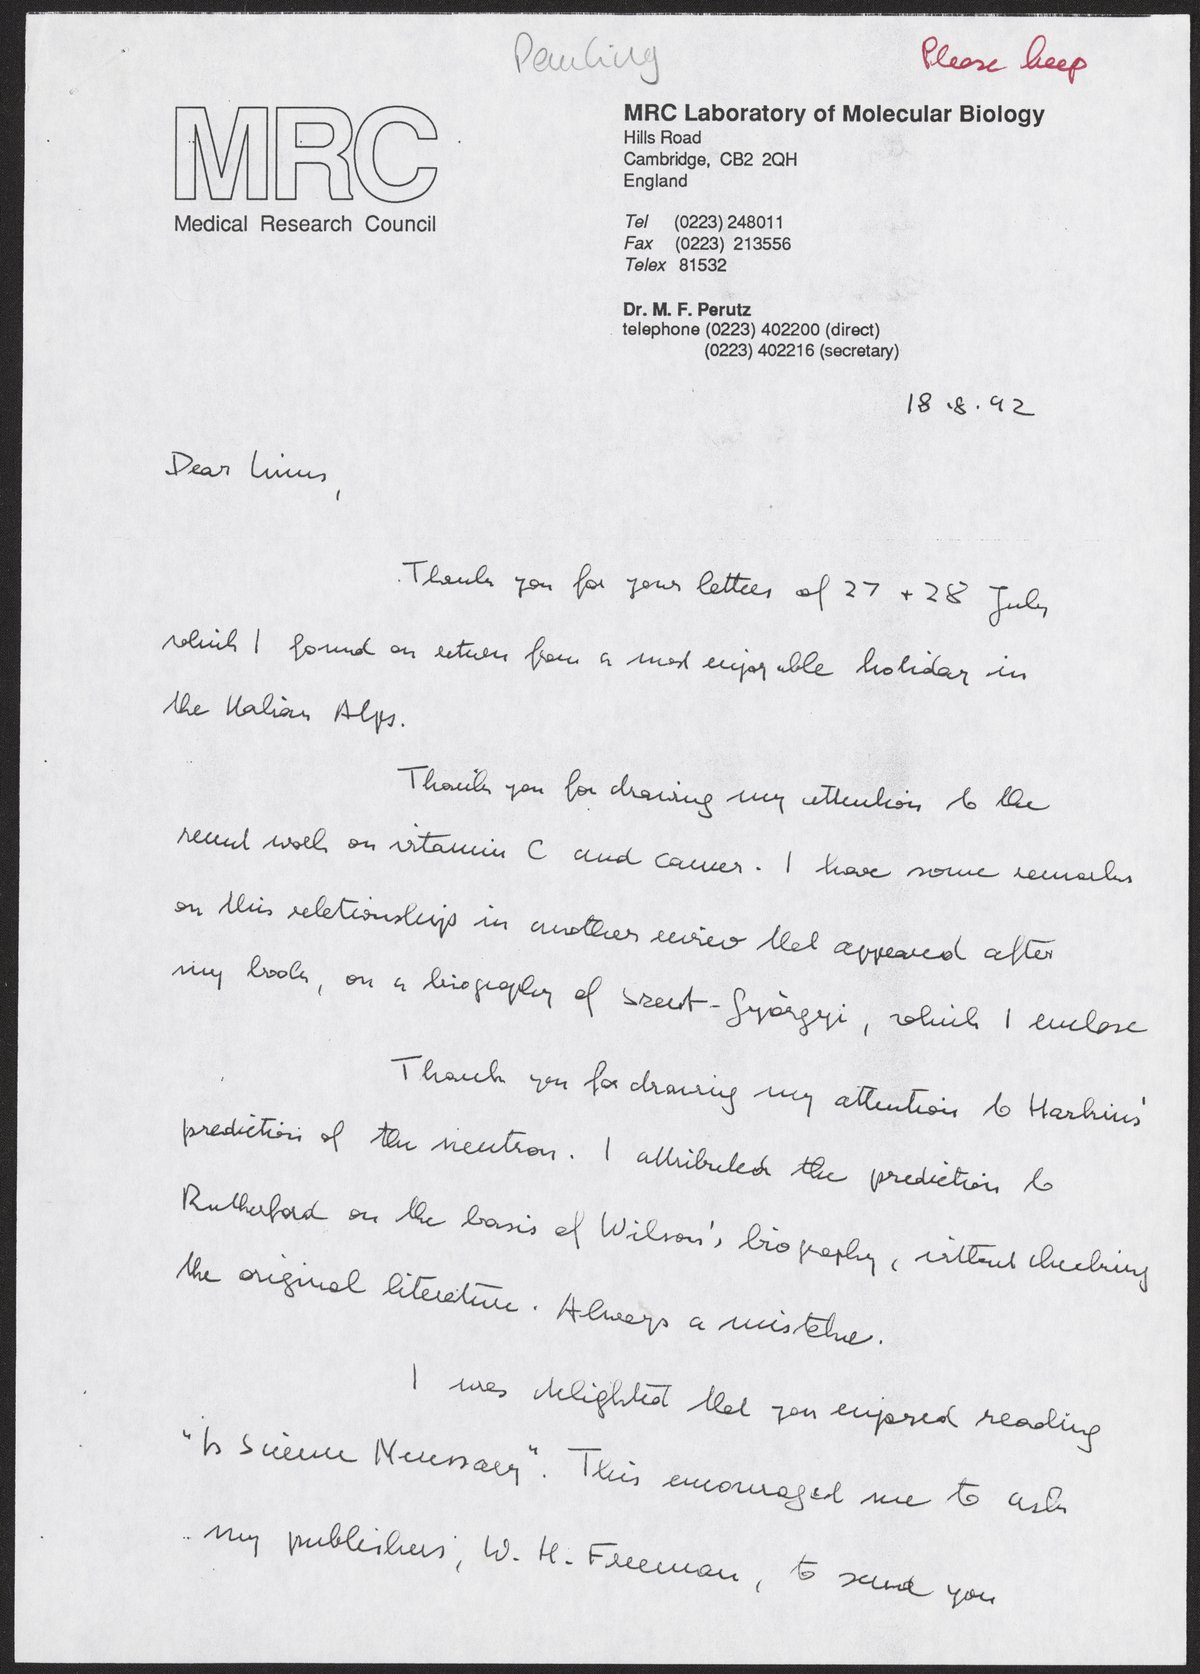 Pauling
Please keep
MRC
Medical Research Council
MRC Laboratory of Molecular Biology
Hills Road
Cambridge, CB2 2QH
England
Tel (0223) 248011
Fax (0223) 213556
Telex 81532
Dr. M. F. Perutz
telephone (0223) 402200 (direct)
(0223) 402216 (secretary)
18.8.92
Dear Linus,
Thank you for your letters of 27 + 28 July
which I found on return from a most enjoyable holiday in
the Italian Alps.
Thank you for drawing my attention to the
recent work on vitamin C and cancer. I have some remarks
on this relationship in another review that appeared after
my book, on a biography of Szent-Györgyi, which I enclose
Thank you for drawing my attention to Harkins'
prediction of the neutron. I attributed the prediction to
Rutherford on the basis of Wilson's biography, without checking
the original literature. Always a mistake.
I was delighted that you enjoyed reading
"Is Science Necessary". This encouraged me to ask
my publishers, W. H. Freeman, to send you